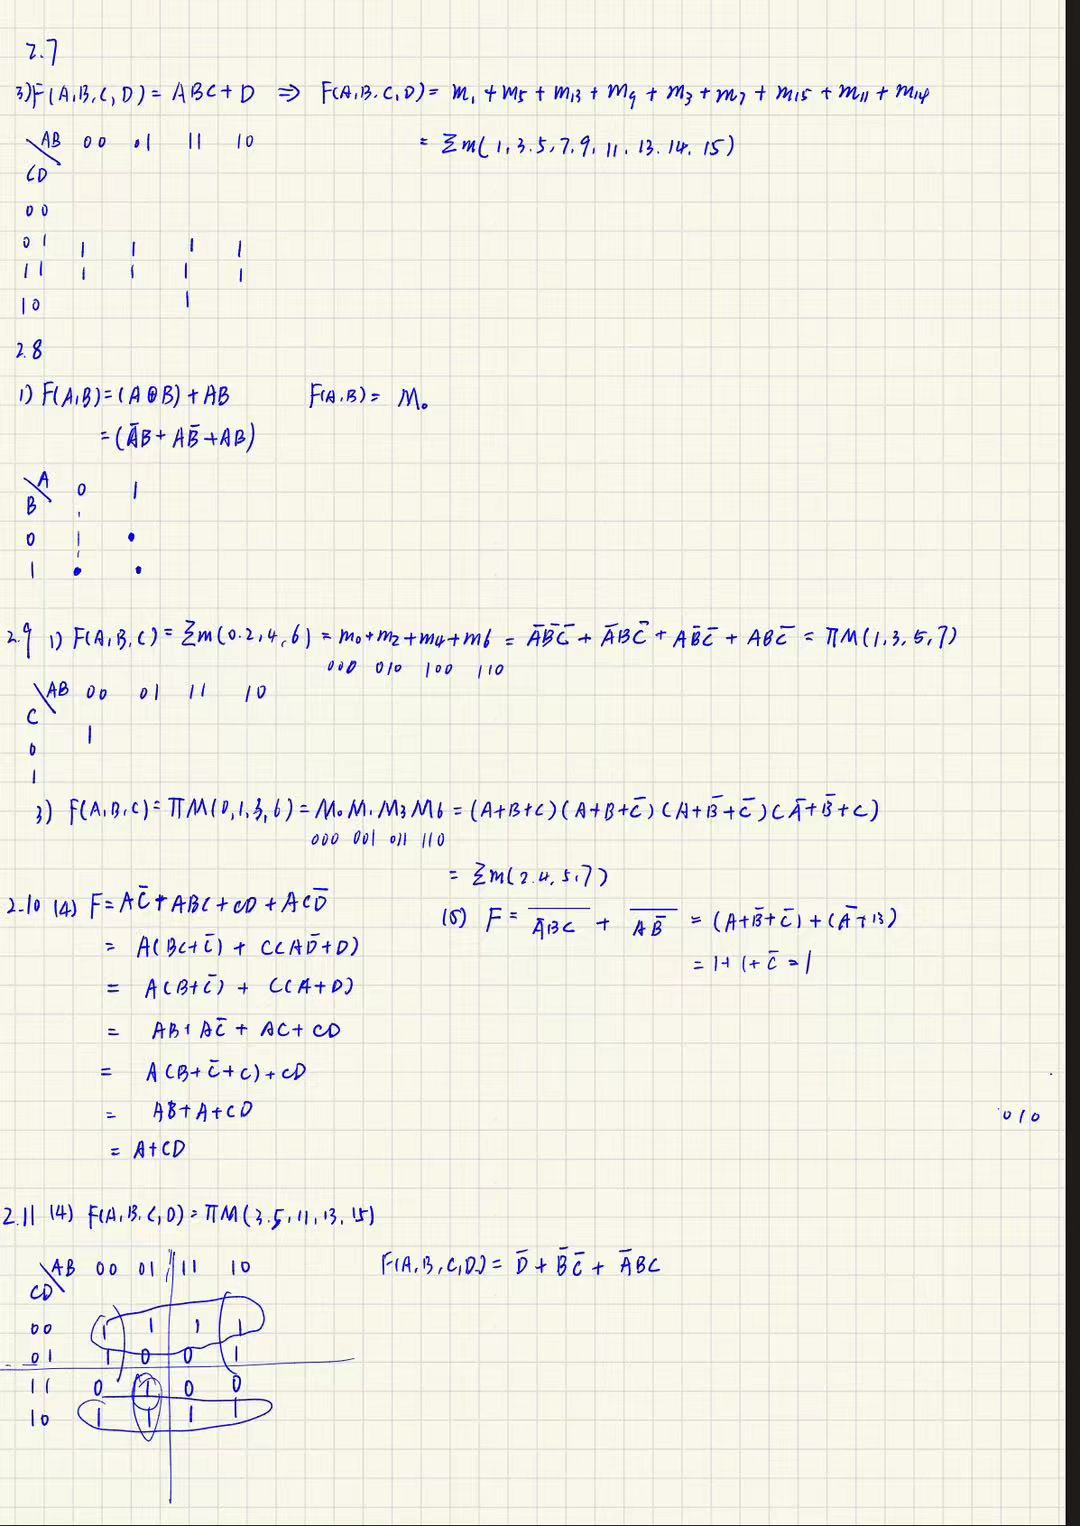 2.7
3) F(A,B,C,D) = ABC + D ⇒ F(A,B,C,D) = m₁ + m₅ + m₁₃ + m₉ + m₃ + m₇ + m₁₅ + m₁₁ + m₁₄
= Σm(1,3,5,7,9,11,13,14,15)
AB 00 01 11 10
CD
00
01 1 1 1 1
11 1 1 1 1
10 1
2.8
1) F(A,B) = (A⊕B) + AB F(A,B) = M₀
= (A̅B + AB̅ + AB)
A 0 1
B
0
1
2.9 1) F(A,B,C) = Σm(0,2,4,6) = m₀+m₂+m₄+m6 = A̅B̅C̅ + A̅BC̅ + AB̅C̅ + ABC̅ = πM(1,3,5,7)
000 010 100 110
AB 00 01 11 10
C
1
0
1
3) F(A,B,C) = πM(0,1,3,6) = M₀M₁M₃M6 = (A+B+C)(A+B+C̅)(A+B̅+C̅)(A̅+B̅+C)
000 001 011 110
= Σm(2,4,5,7)
2.10 (4) F = AC̅ + ABC + CD + ACD̅
= A(BC+C̅) + C(AD̅+D)
= A(B+C̅) + C(A+D)
= AB + AC̅ + AC + CD
= A(B+C̅+C)+CD
= AB+A+CD
= A+CD
(5) F = \overline{A̅BC} + \overline{AB̅} = (A+B̅+C̅) + (A̅+B)
= 1+1+C̅ = 1
010
2.11 (4) F(A,B,C,D) = πM(3,5,11,13,15)
AB 00 01 11 10 F(A,B,C,D) = D̅ + B̅C̅ + A̅BC
CD
00 1 1 1 1
01 1 0 0 1
11 0 1 0 0
10 1 1 1 1